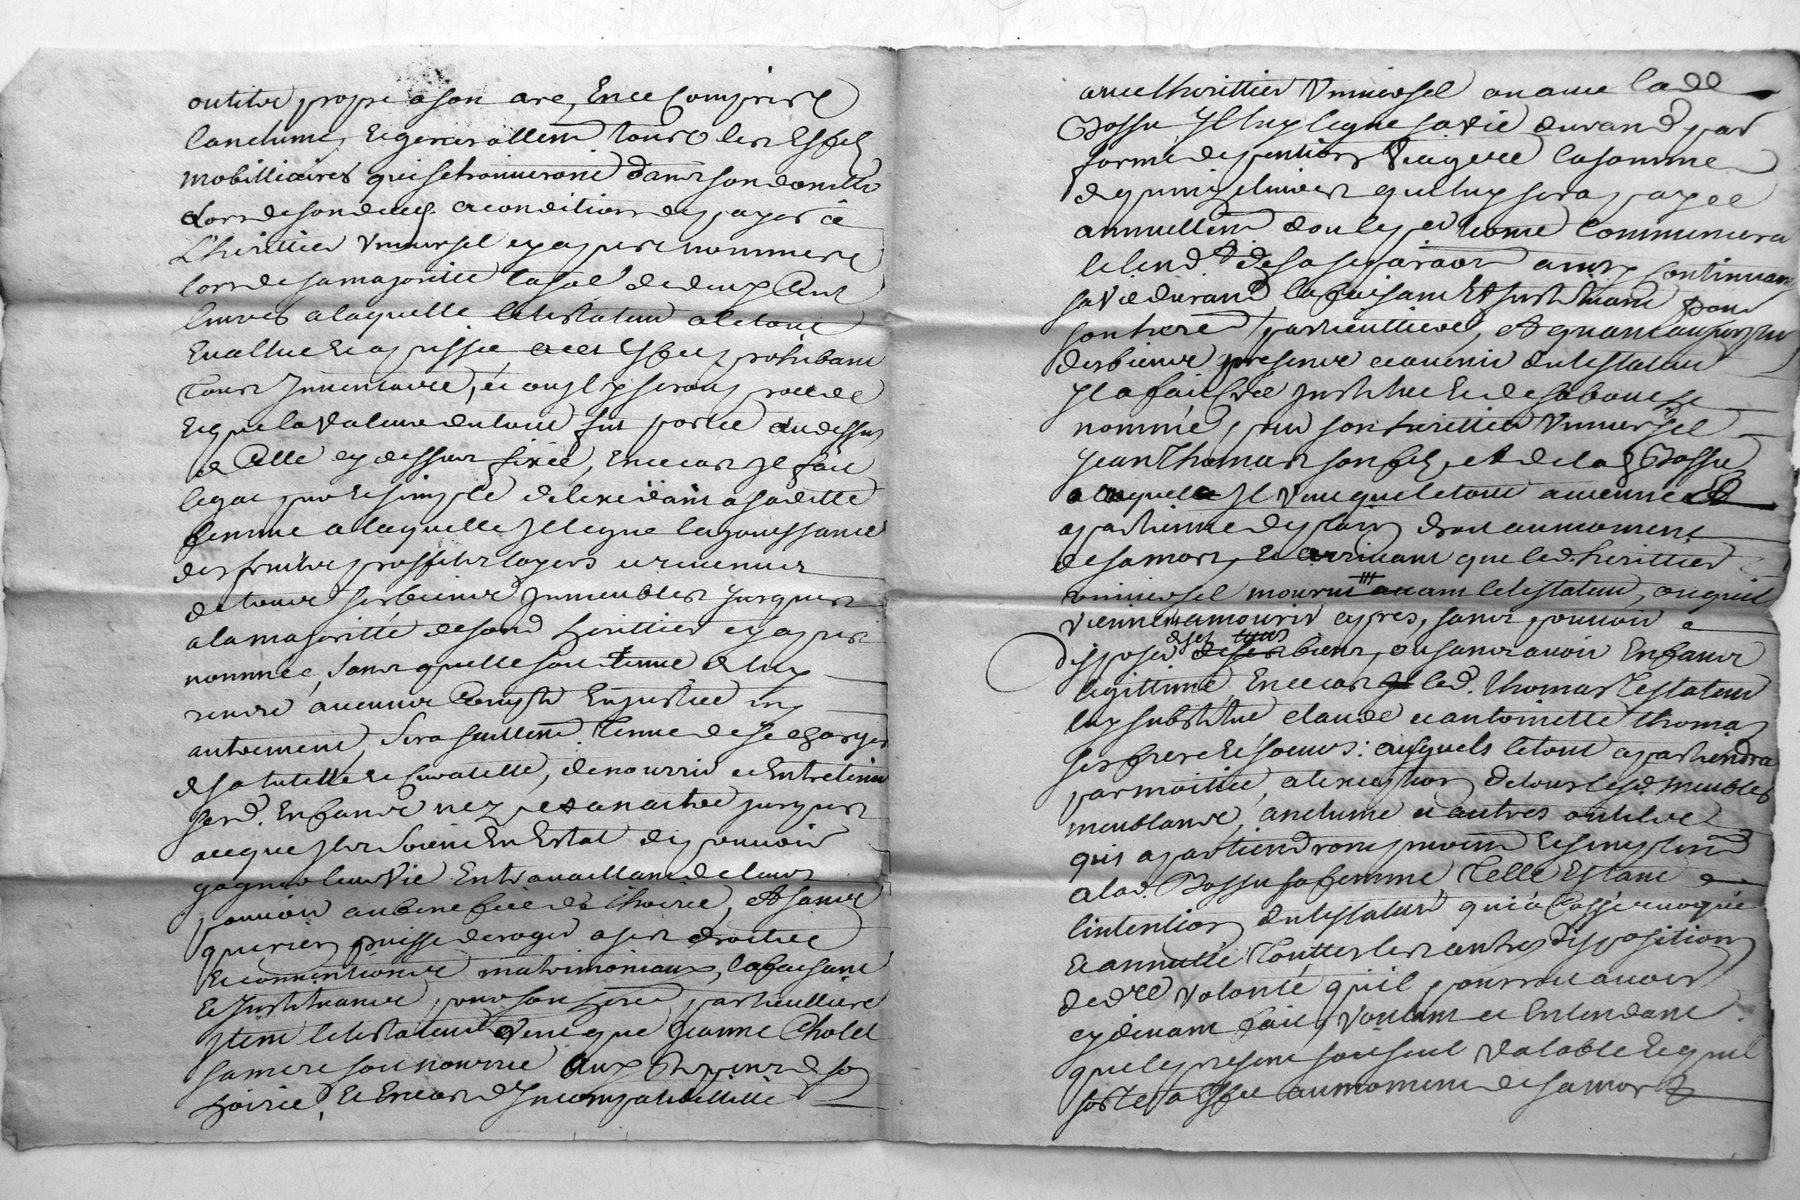 outils propre a son art, En ce Compris
Lanclume, Et generallem.t tous les Effets
mobilliaires qui se trouveront dans son domicille
Lors de son deces. a condition de payer à
L'heritier Universel cy apres nommé
lors de sa majorité la so.e de deux Cent
livres a laquelle le testateur a le tout
Evallué Et apretié, a ces Effets prohibant
tout Inventaire, et ou il y seroit procedé
Et que la valeur du tout fut portée au dessus
de Celle cy dessus fixée, En ce cas Il fait
legat pur Et simple de l'exedant a sa ditte
femme a laquelle Il legue la jouissance
des fruits proffits loyers et revenus
de tous ses biens Immeubles jusques
a la majorité de son d. heritier cy apres
nommé, sans quelle soit tenue de luy
rendre aucuns Compte En justice ny
autrement, sera seullem.t tenue de se charger
de sa tutelle Et Curatelle, de nourrir et Entretenir
ses d. Enfans nez et a naitre jusques
a ce que Ils soient En Estat de pouvoir
gagner leur vie En travaillant de leur
pouvoir au benefice de l'hoirie, Et sans
que rien puisse deroger a ses droits
Et conventions matrimoniaux, la faisant
Et Instituant pour son here particulliere
Item le testateur Veut que Jeanne Cholet
sa mere soit nourrie aux depens de son
hoirie, Et En cas d'Incompatibillité
avec l'heritier Universel ou avec lad.
Bossu Il luy legue sa vie durand par
forme de pention Viagere la somme
de quinze livres qui luy sera payée
annuellem.t dont le p.r terme Commencera
le lend. de sa separation ainsy continuant
sa vie durand la faisant Et Instituant pour
son here particulliere, Et quant au surplus
des biens presens et avenir du testateur
Il a fait Créé Institué Et de sa bouche
nommé, pour son heritier Universel
Jean Thomas son fils, et de lad. Bossu
a laquelle Il Veut que le tout avienne Et
apartienne de plain droit au moment
de sa mort, Et arrivant que led. heritier
universel mourut avant le testateur, ou quil
vienne a mourir apres, sans pouvoir
disposer de ses biens, ou sans avoir Enfans
legittime, En ce cas led. Thomas Testateur
luy substitue Claude et antoinette Thomas
ses frere Et soeurs: ausquels le tout apartiendra
par moitié, a l'exeption de tous lesd. meubles
meublans, anclume et autres outils
qui apartiendront purem.t Et simplem.t
a lad. Bossu sa femme, Telle Estant
l'intention du testateur qui a Cassé revoqué
Et annullé Touttes les autres disposition
de d.re volonté qu'il pourroit avoir
cy devant fait, Voulant et Entendant
que le present soit seul valable Et quil
sorte a Effet au moment de sa mort